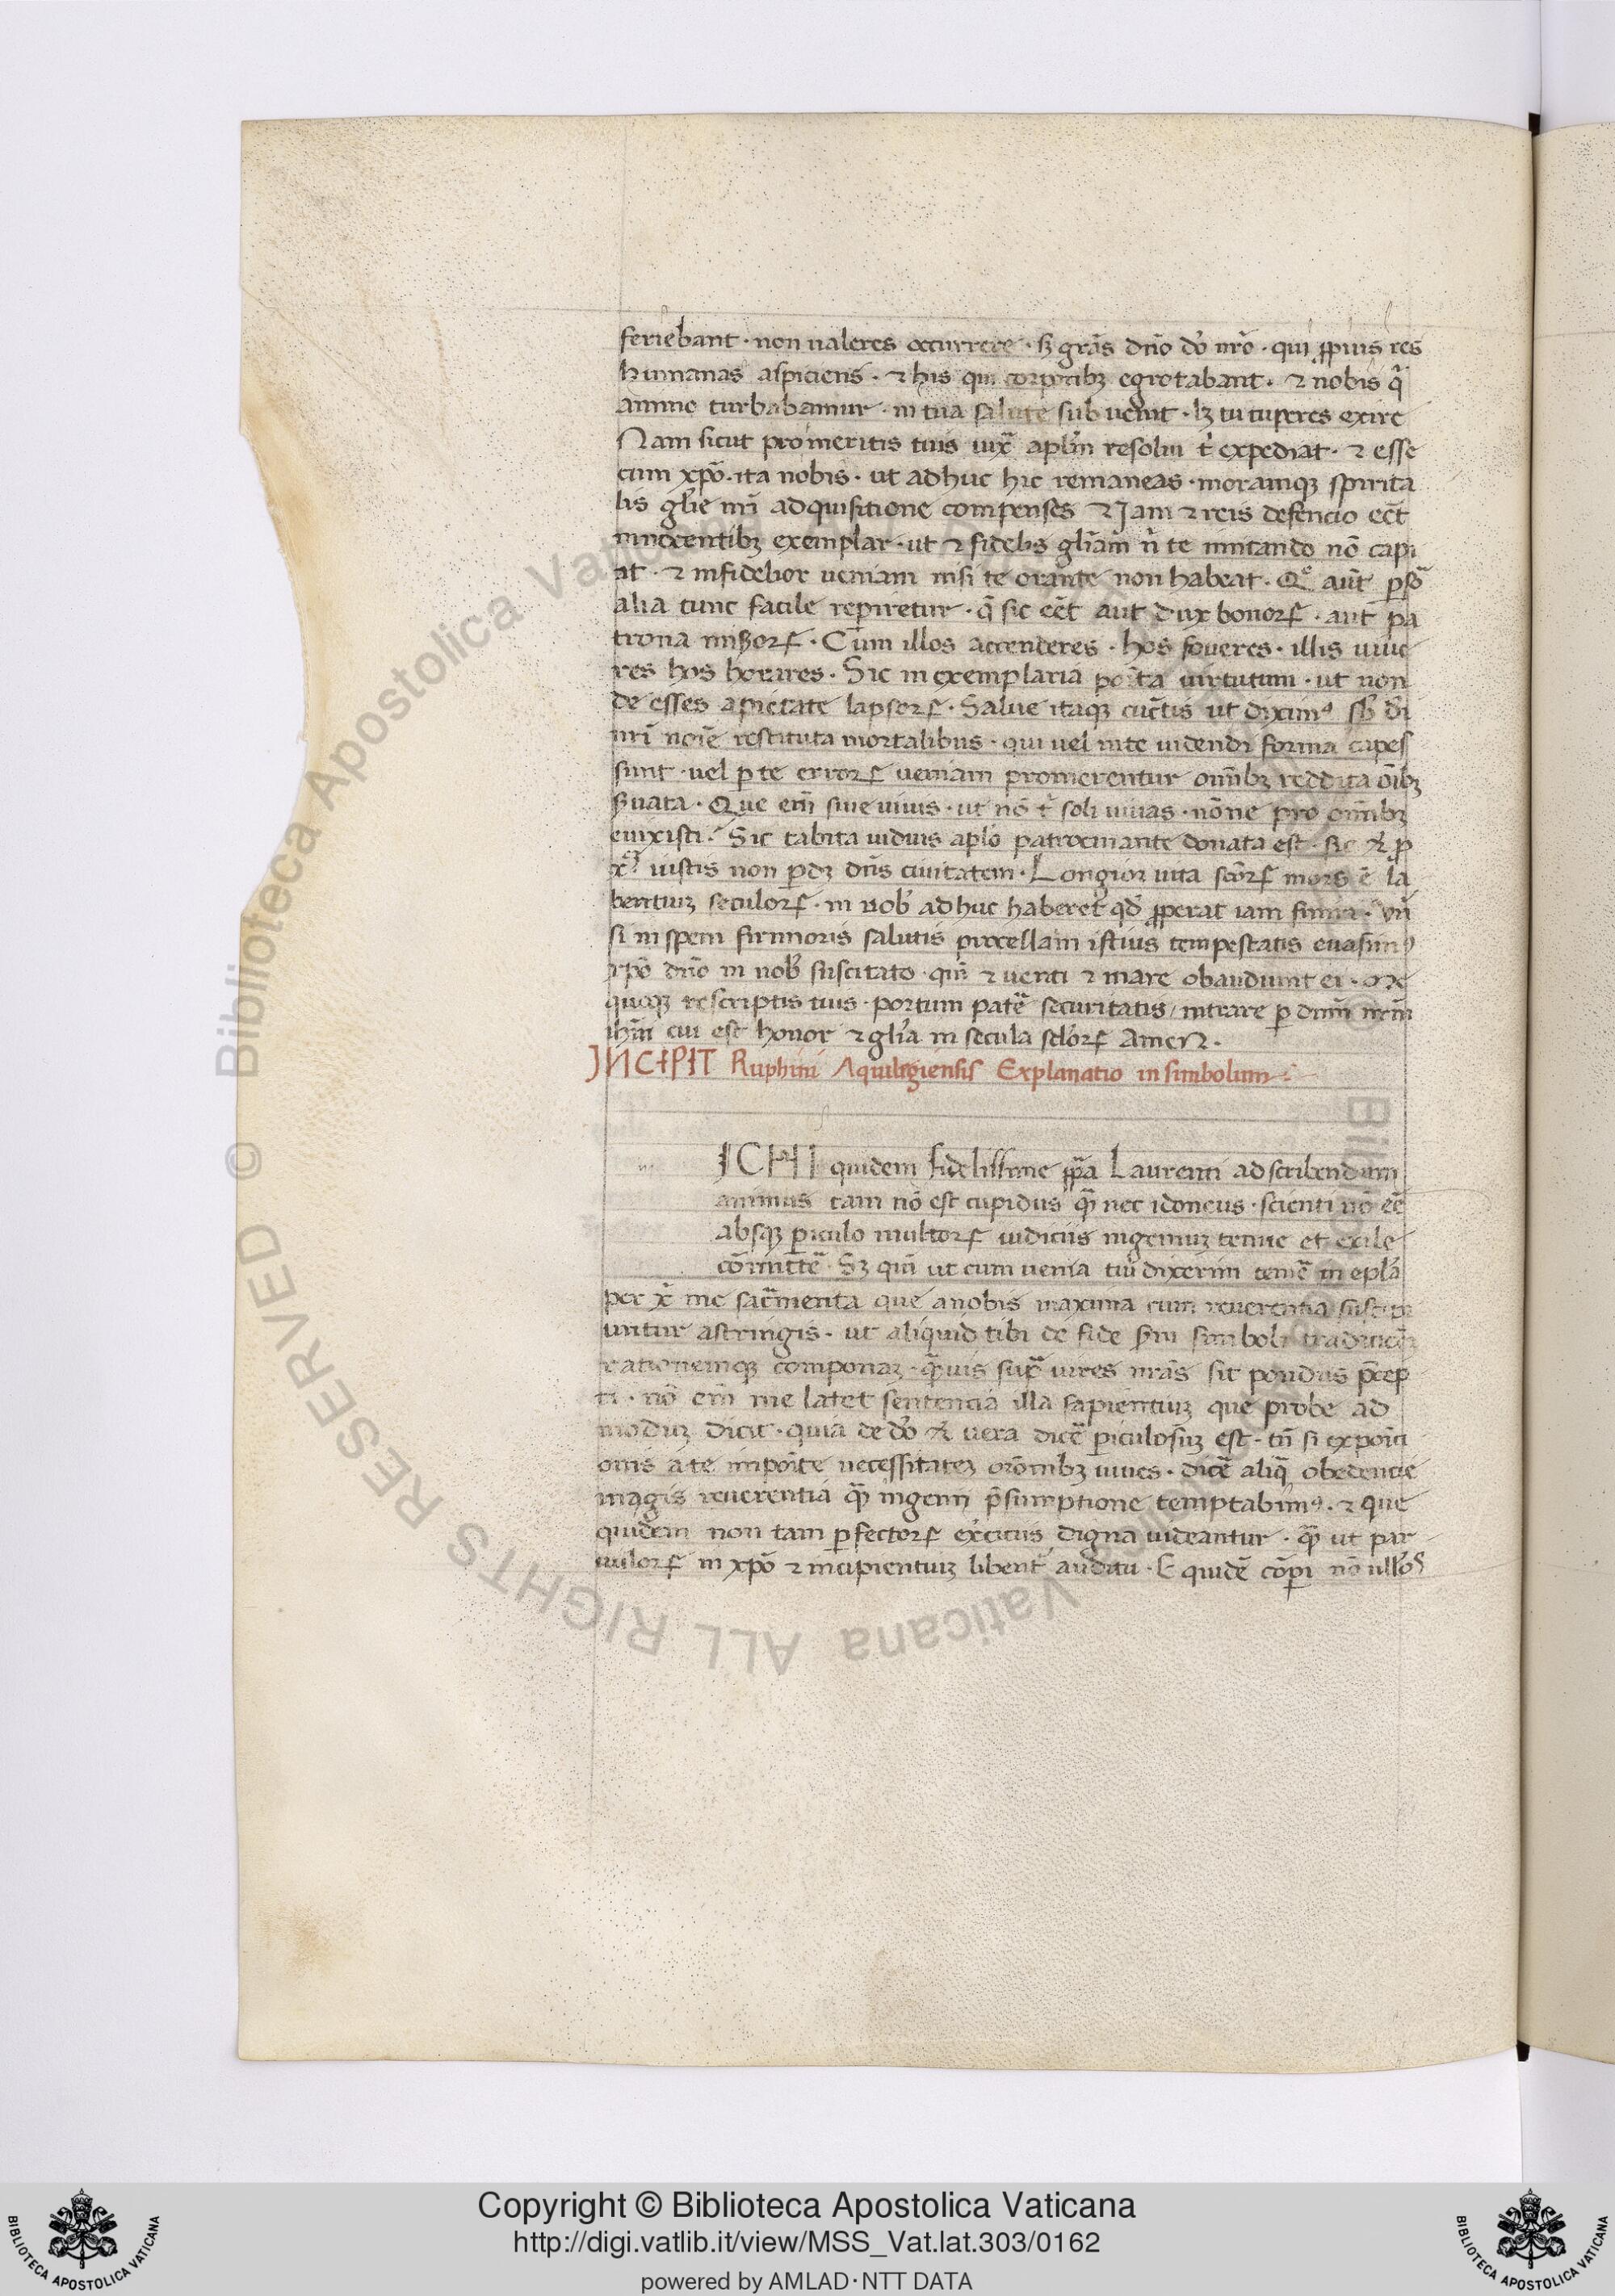 feriebant · non ualeres occurrere · sꝫ gr̄as dn̄o dō nr̄o · qui ꝓpius res
humanas aspiciens · ⁊ his qui corporibꝫ egrotabant · ⁊ nobis q̄
animo turbabamur · in tua salute subuenit · lꝫ tu cuperes exire
Nam sicut pro meritis tuis iux̄ apl̄m resolui t̄ expediat · ⁊ esse
cum xp̄o · ita nobis · ut adhuc hic remaneas · moramqꝫ spirita
lis gl̄ie nr̄i adquisitione compenses ⁊ Jam ⁊ reis defencio eēt
innocentibꝫ exemplar · ut ⁊ fidelis gl̄iam n̄ te imitando nō capi
at · ⁊ infidelior ueniam nisi te orante non habeat · Qͦ aūt ꝑsōa
alia tunc facile reꝑiretur · q̄ sic eēt aut dux bonorꝝ · aut pa
trona misorꝝ · Cum illos accenderes · hos foueres · illis uiue
res hos horires · Sic in exemplaria poīta uirtutum · ut non
de esses apietate lapsorꝝ · Salue itaqꝫ cuc̄tis ut diximꝰ sb̄ dn̄i
nr̄i noīe restituta mortalibus · qui uel inte uidendi forma capes
sunt · uel ꝑ te errorꝝ ueniam promerentur omībꝫ reddita oībꝫ
s̄uata · Que em̄ siue uiuis · ut nō t̄ soli uiuas · nōne pro omībꝫ
euixisti · Sic tabita uiduis apl̄o patrocinante donata est · sic ⁊ ꝓ
iustis non ꝑdꝫ dn̄s ciuitatem · Longior uita scōrꝝ mors ē la
bentiuꝫ seculorꝝ · in uob̄ adhuc haberet qd̄ ꝓperat iam finiri · Vn̄
si in spem firmioris salutis procellam istius tempestatis euasimꝰ
xp̄o dn̄o in nob̄ suscitato · qm̄ ⁊ uenti ⁊ mare obaudiunt ei · Me
quoqꝫ rescriptis tuis · portum patē securitatis / intrare ꝑ dn̄m nr̄m
ih̄m cui est honor ⁊ gl̄ia in secula scl̄orꝝ Amen ·
INCIPIT Ruphini Aquilegiensis Explanatio in simbolum
ICHI quidem fidelissime pp̄a Laurenti ad scribendum
animus tam nō est cupidus qͣm nec idoneus · scienti nō eē
absqꝫ ꝑiculo multorꝝ iudiciis ingeniuꝫ tenue et exile
cōmittē · Sꝫ qm̄ ut cum uenia tui dixerim temē in epl̄a
per x̄ me sac̄menta que anobis maxima cum reuerentia suscipi
untur astringis · ut aliquid tibi de fide s̄m simboli tradicōem
rationemqꝫ componaꝫ · qͣuis supͣ uires nr̄as sit pondus p̄cep
ti · nō em̄ me latet sentencia illa sapientiuꝫ que probe ad
moduꝫ dicit · quia de dō ⁊ uera dicē ꝑiculosuꝫ est · tn̄ si expoīci
onis a te impoīte necessitateꝫ orōnibꝫ iuues · dicē aliq̄ obedencie
magis reuerentia qͣm ingenii p̄sumptione temptabimꝰ · ⁊ que
quidem non tam ꝑfectorꝝ ex̄citiis digna uideantur · qͣm ut par
uulorꝝ in xp̄o ⁊ incipientiuꝫ libent̄ auditu · E quidē cōꝑi nō ullos
© Biblioteca Apostolica Vaticana ALL RIGHTS RESERVED
Copyright © Biblioteca Apostolica Vaticana
http://digi.vatlib.it/view/MSS_Vat.lat.303/0162
powered by AMLAD·NTT DATA
BIBLIOTECA APOSTOLICA VATICANA
BIBLIOTECA APOSTOLICA VATICANA